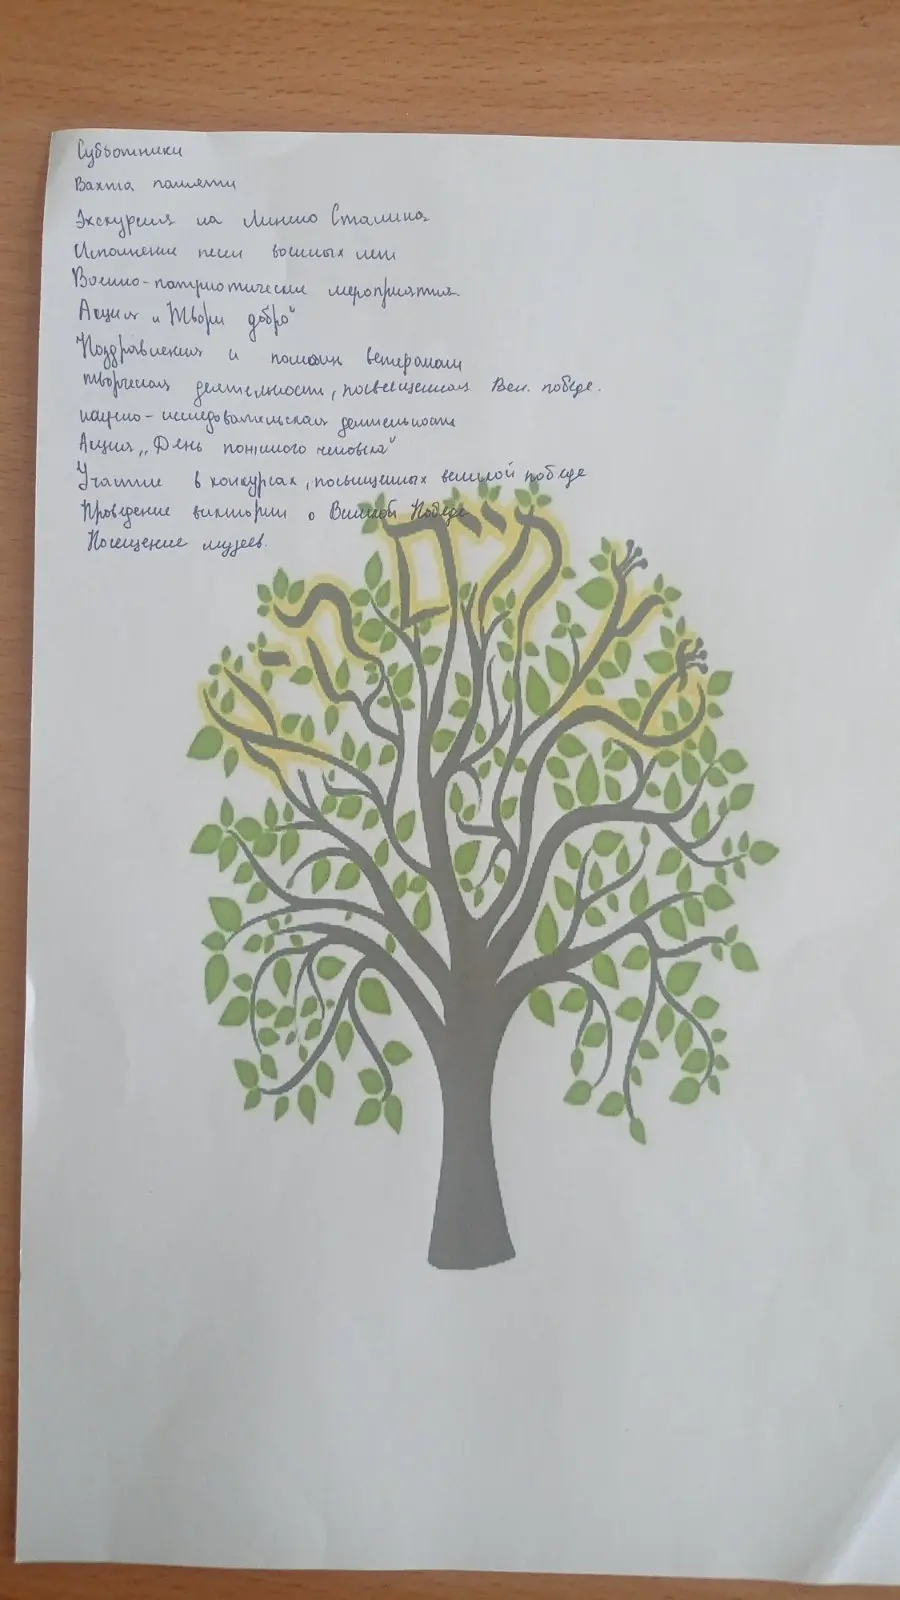 Субботники
Вахта памяти
Экскурсия на Линию Сталина
Исполнение песен военных лет
Военно-патриотические мероприятия.
Акция „Твори добро“
Поздравления и помощь ветеранам
творческая деятельность, посвещенная Вел. победе.
научно-исследовательская деятельность
Акция „День пожилого человека“
Участие в конкурсах, посвященных великой победе
Проведение викторин о Великой Победе
Посещение музеев.